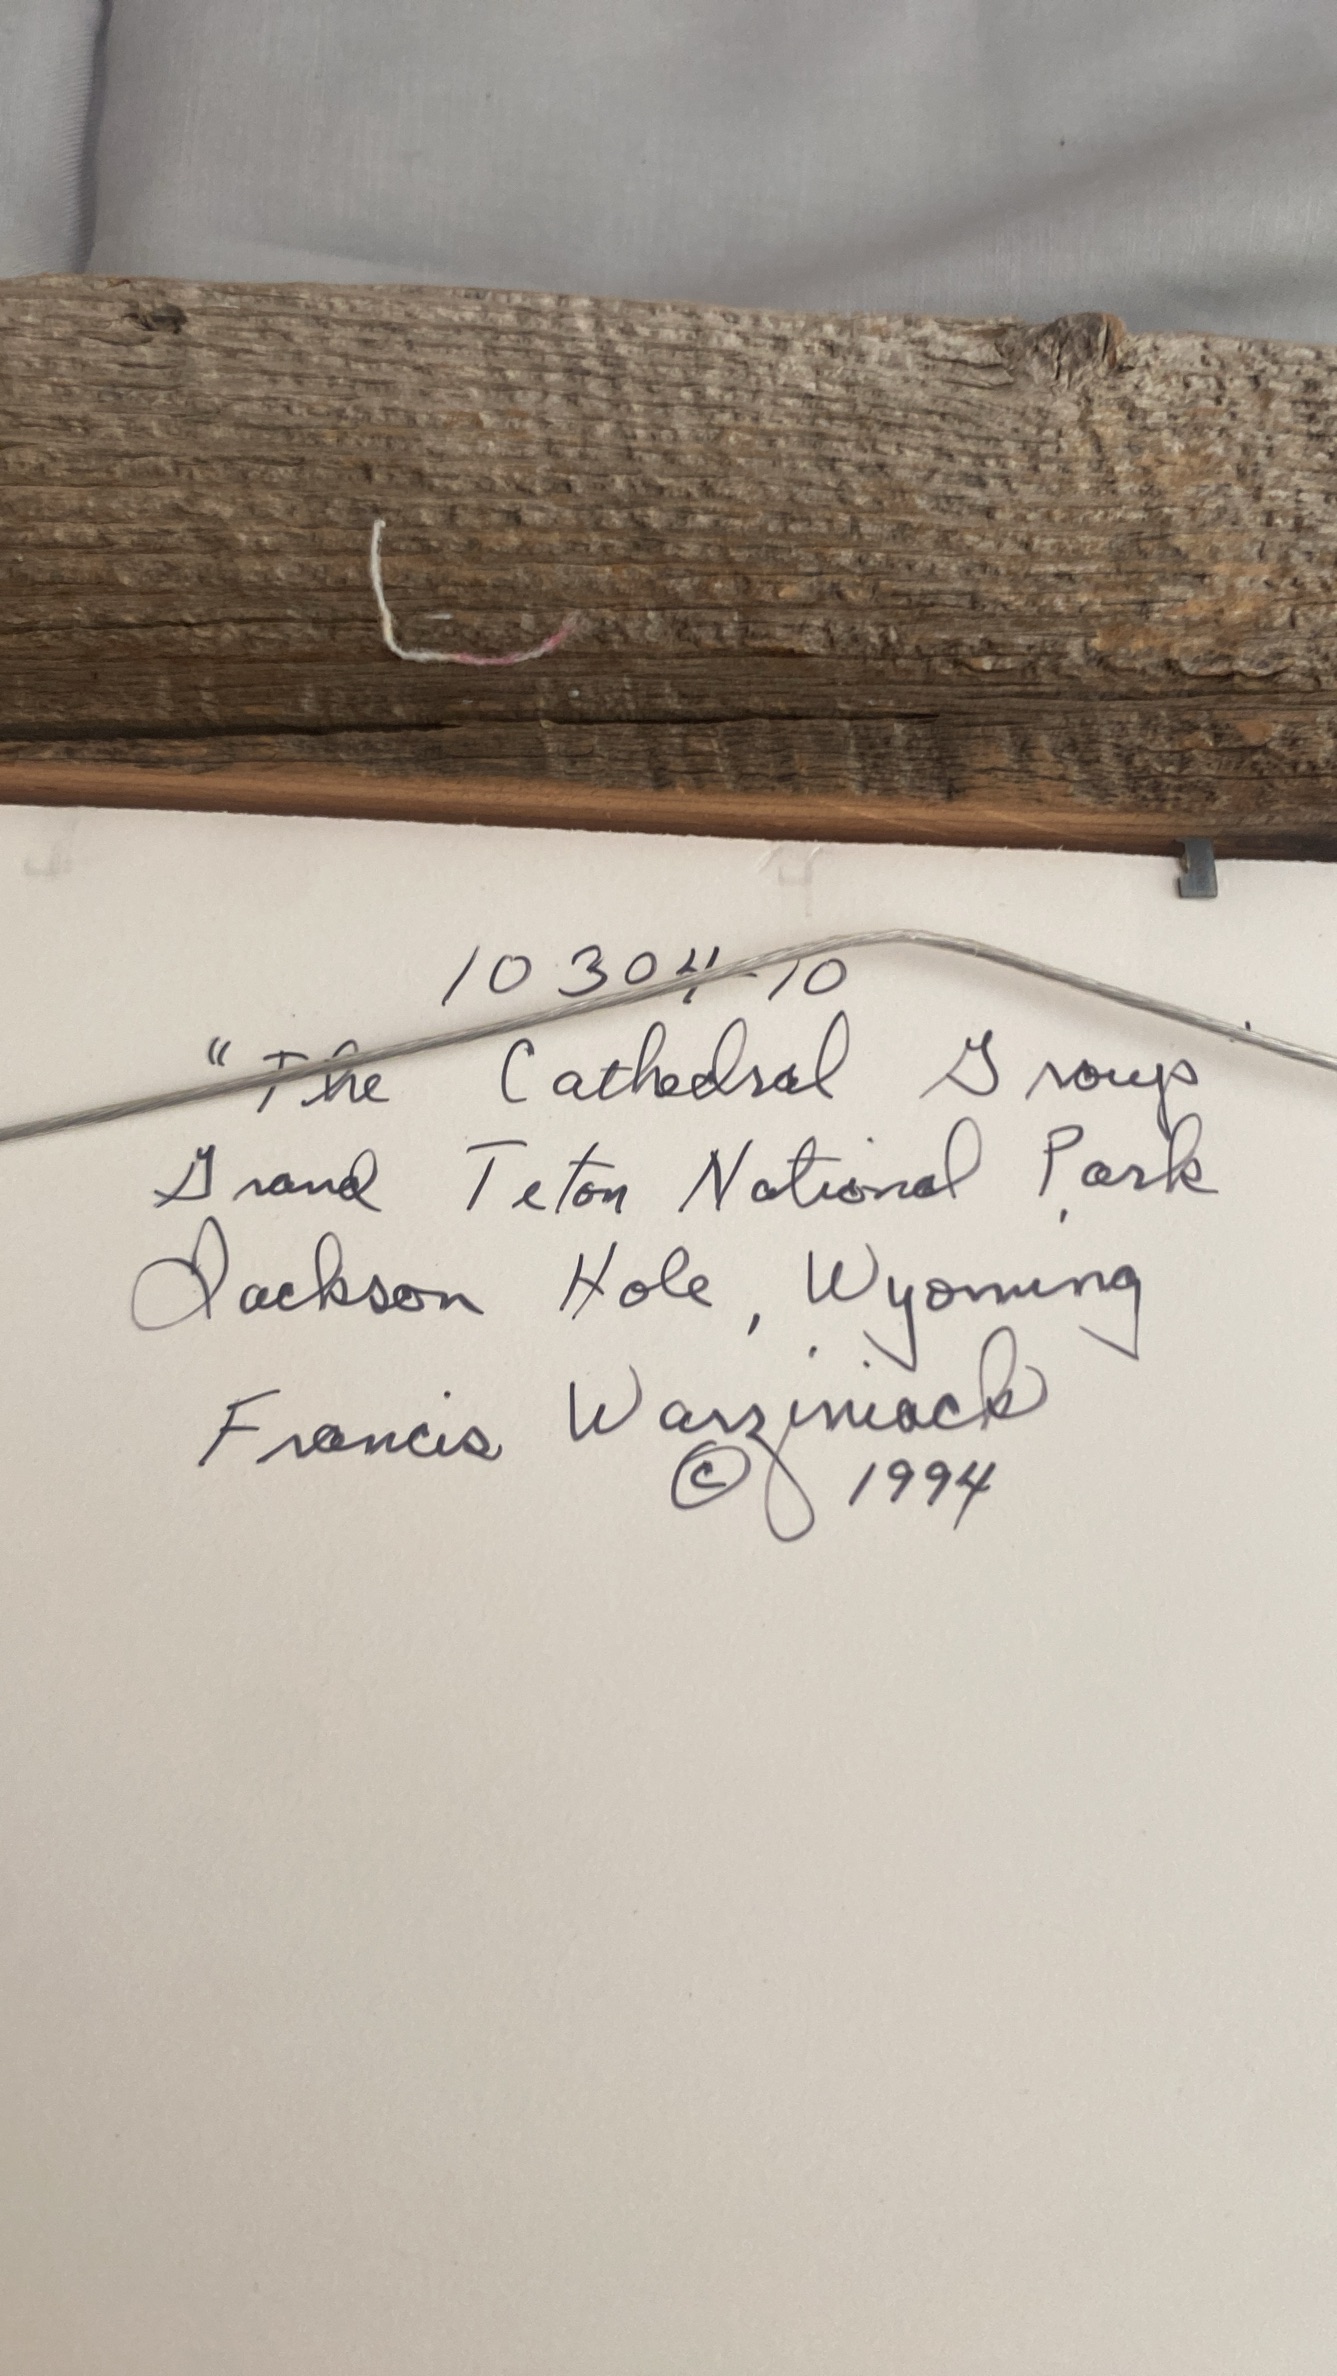 10304-10
"The Cathedral Group
Grand Teton National Park
Jackson Hole, Wyoming
Francis Warziniack
© 1994